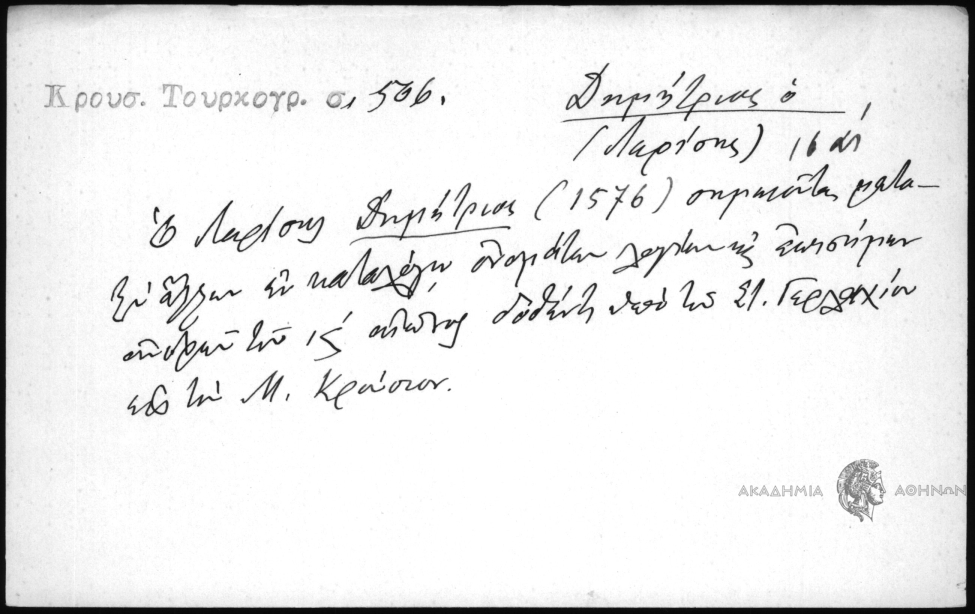 Κρουσ. Τουρκογρ. σ. 506.
Δημήτριος ὁ
(Λαρίσης) 16 αἰ
Ὁ Λαρίσης Δημήτριος (1576) σημειοῦται μετα-
ξὺ ἄλλων ἐν καταλόγῳ ὀνομάτων λογίων καὶ ἐπισήμων
ἀνδρῶν τοῦ ις´ αἰῶνος δοθέντι ὑπὸ τοῦ Στ. Γερλαχίου
εἰς τὸν Μ. Κρούσιον.
ΑΚΑΔΗΜΙΑ ΑΘΗΝΩΝ